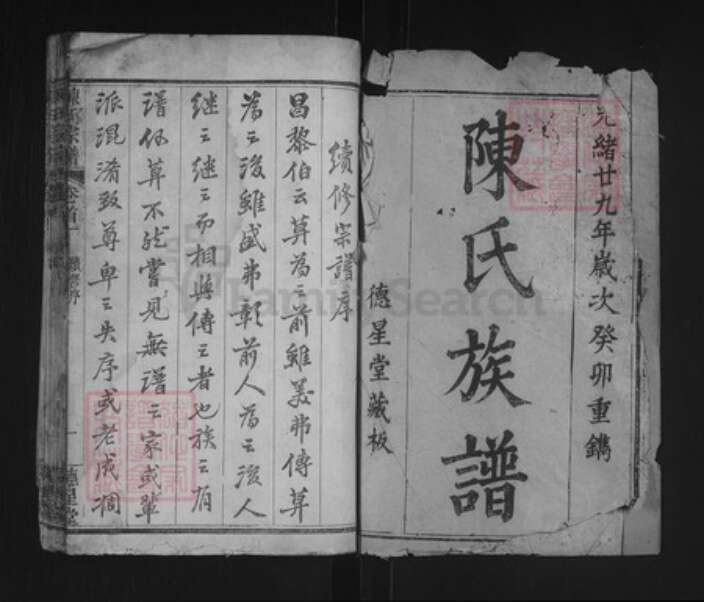 光緒廿九年歲次癸卯重鐫
陳氏族譜
德星堂藏板
續修宗譜序
昌黎伯云莫為之前雖美弗傳莫
為之後雖盛弗彰前人為之後人
繼之繼之而相與傳之者也族之有
譜何莫不然嘗見無譜之家或輩
派混淆致尊卑之失序或老成凋
陳氏宗譜 卷首
一 德星堂
FamilySearch